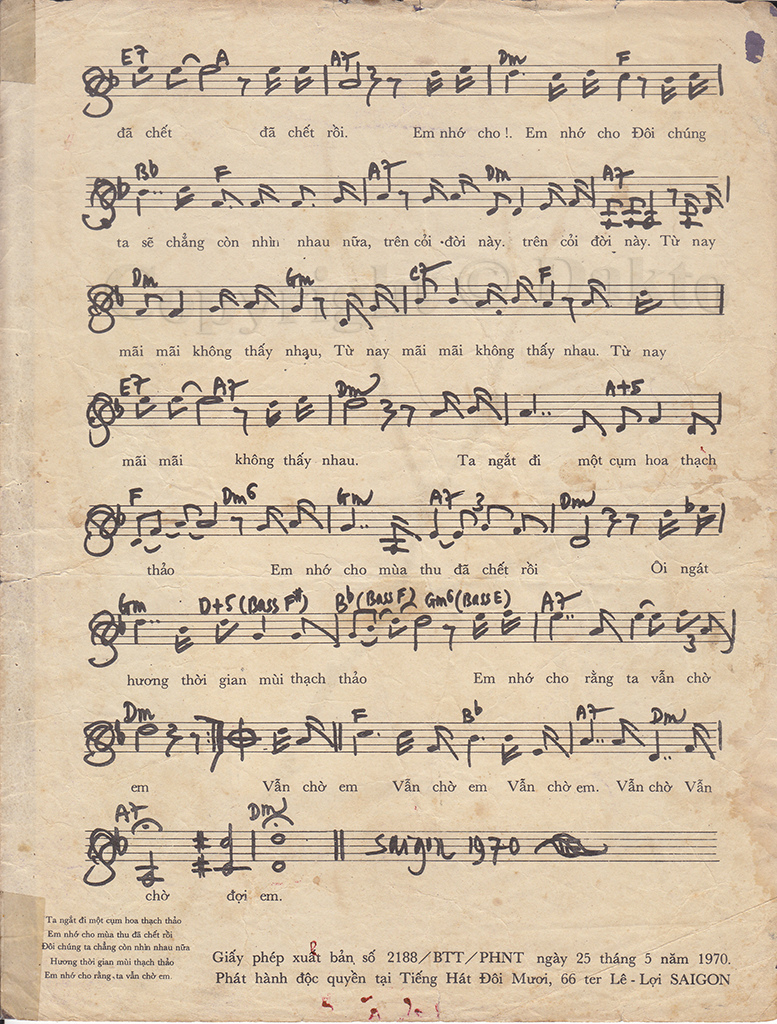 E7 A A7 Dm F
đã chết đã chết rồi. Em nhớ cho !. Em nhớ cho Đôi chúng
Bb F A7 Dm A7
ta sẽ chẳng còn nhìn nhau nữa, trên cỏi đời này. trên cỏi đời này. Từ nay
Dm Gm C7 F
mãi mãi không thấy nhau, Từ nay mãi mãi không thấy nhau. Từ nay
E7 A7 Dm A+5
mãi mãi không thấy nhau. Ta ngắt đi một cụm hoa thạch
F Dm6 Gm A7 3 Dm
thảo Em nhớ cho mùa thu đã chết rồi Ôi ngát
Gm D+5 (Bass F#) Bb (Bass F) Gm6 (Bass E) A7
3
hương thời gian mùi thạch thảo Em nhớ cho rằng ta vẫn chờ
Dm F Bb A7 Dm
em Vẫn chờ em Vẫn chờ em Vẫn chờ em. Vẫn chờ Vẫn
A7 Dm
Saigon 1970
chờ đợi em.
Ta ngắt đi một cụm hoa thạch thảo
Em nhớ cho mùa thu đã chết rồi
Đôi chúng ta chẳng còn nhìn nhau nữa
Hương thời gian mùi thạch thảo
Em nhớ cho rằng ta vẫn chờ em.
Giấy phép xuất bản số 2188/BTT/PHNT ngày 25 tháng 5 năm 1970.
Phát hành độc quyền tại Tiếng Hát Đôi Mươi, 66 ter Lê - Lợi SAIGON